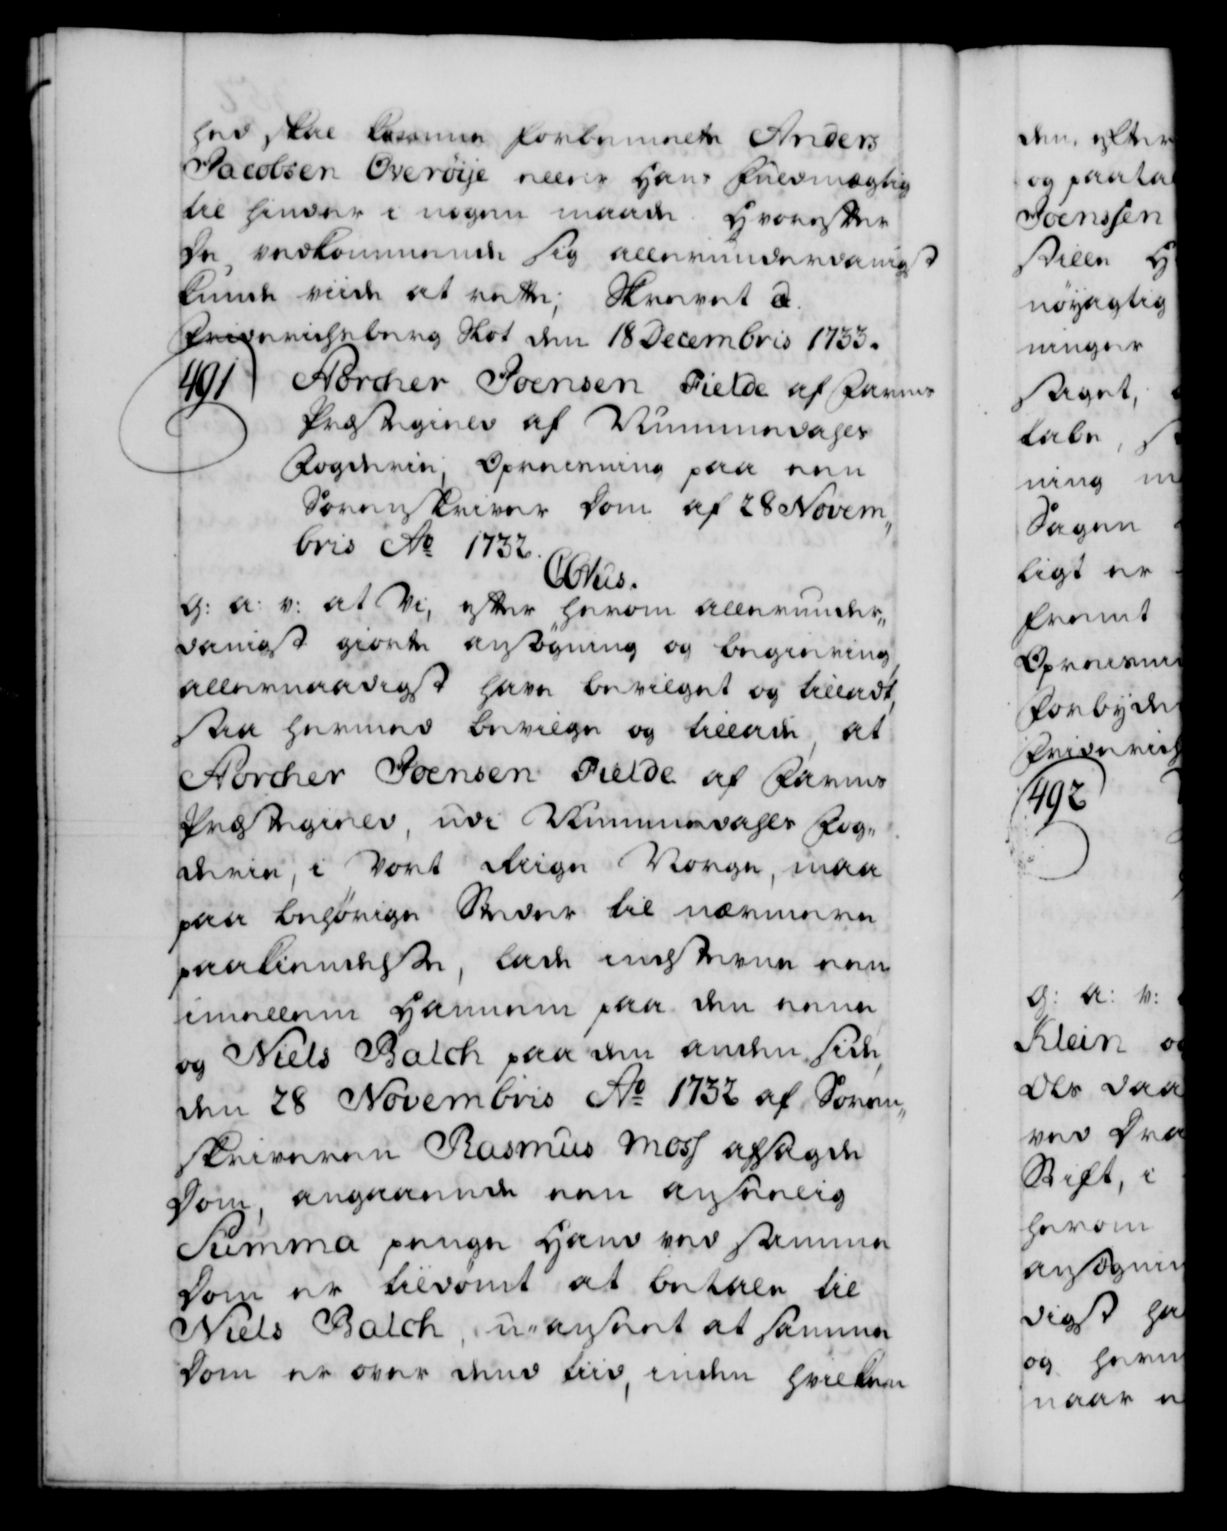 hed skal komme forbemelte Anders
Jacobsen Overöije eller Hans Fuldmægtig
til hinder i nogen maade. Hvorefter
de vedkommende sig allerunderdanigst
kunde viide at rette; Skrevet a.
Friderichsberg Slot den 18 Decembris 1733.
491) Norcher Joensen Fielde af Farnes
Præstegield af Nummedahls
Fogderie, Opreisning paa een
Sorenskriver Dom af 28 Novem„
bris Ao 1732.
C6tus.
G: a: v: at Vi, efter herom allerunder„
danigst giorte ansögning og begiering,
allernaadigst have bevilget og tilladt,
saa hermed bevilge og tillade, at
Norcher Joensen Fielde af Farnes
Præstegield, udi Nummedahls Fog„
derie, i Vort Riige Norge, maa
paa behörige Steder til nærmere
paakiendelse, lade indstevne een
imellem Hannem paa den eene
og Niels Balch paa den anden side,
den 28 Novembris Ao 1732 af Soren„
skriveren Rasmus Moss afsagde
Dom, angaaende een anseelig
Summa penge Hand ved samme
Dom er tildömt at betale til
Niels Balch, u-anseet at samme
Dom er over dend tiid, inden hvilken
den, efter
og paata
Joenssen
stille H
nöyagtig
ninger
staget,
tabe, s
ning m
Sagen
ligt er
fremt
Opreisni
Forbyde
Friderich
492
G: a: v:
Klein o
Ols daa
ved Dra
Stift, i
herom
ansögnin
digst ha
og herm
naar e